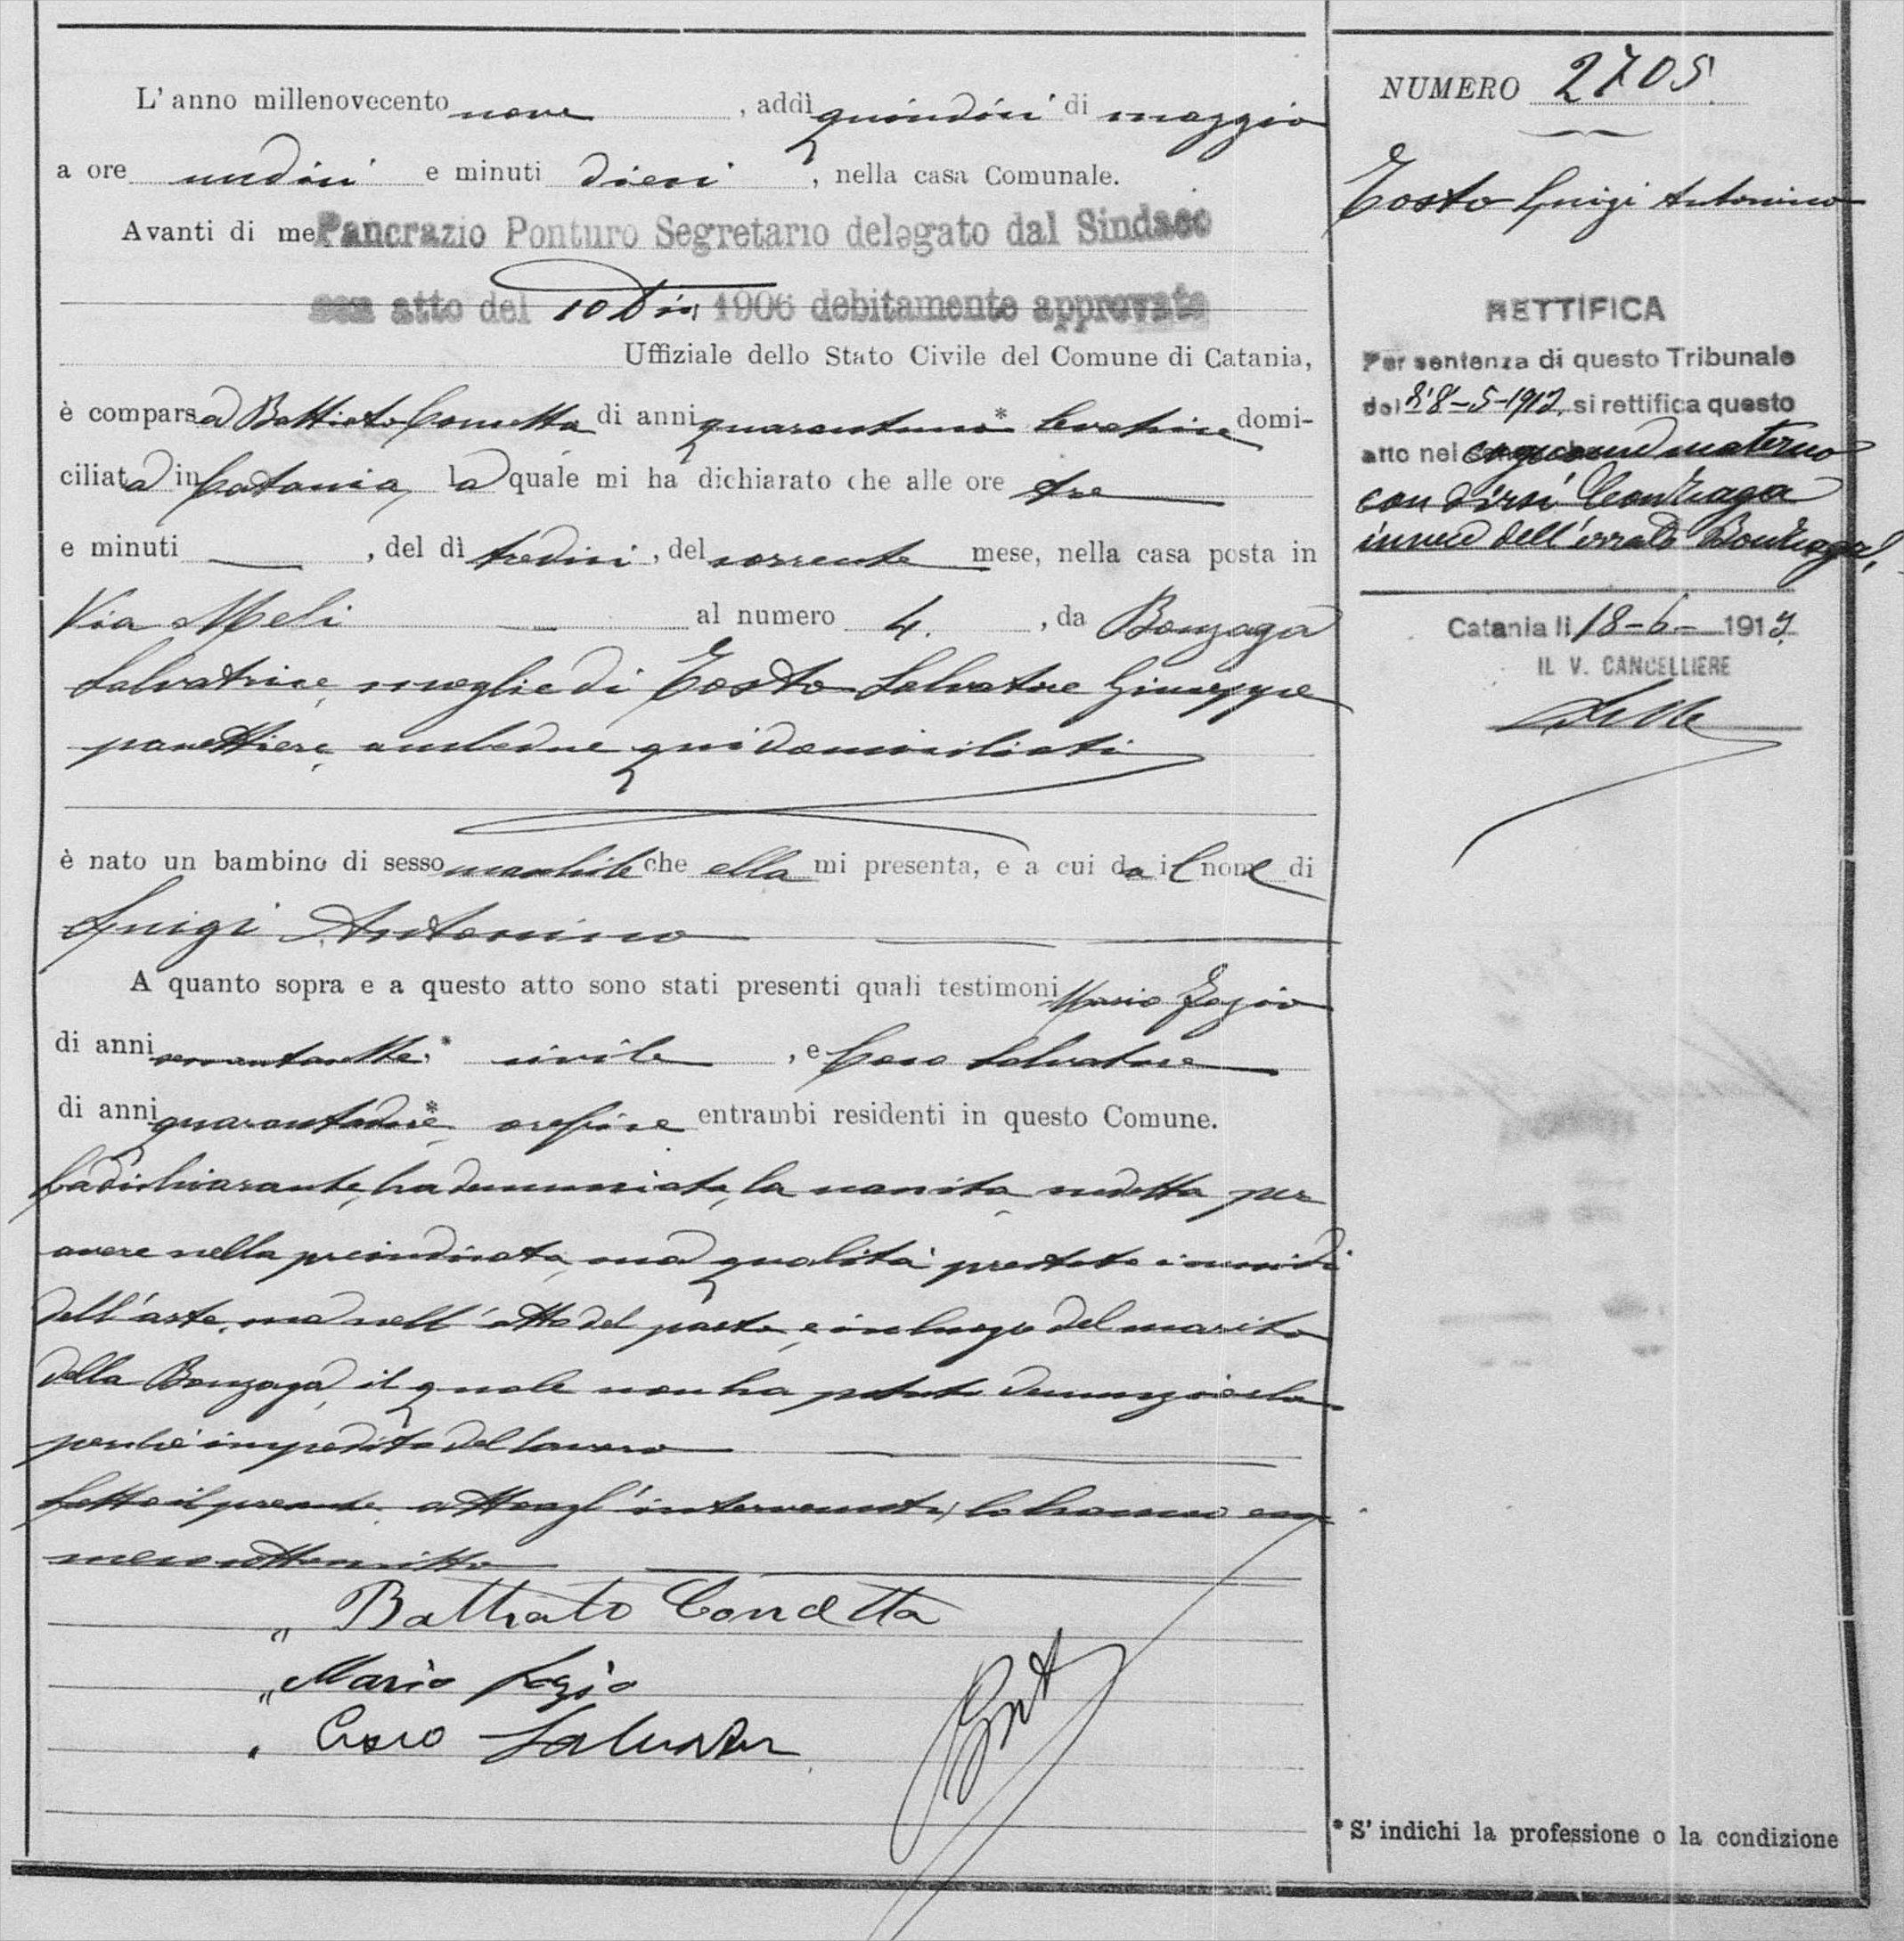 L'anno millenovecento nove, addì quindici di maggio
a ore undici e minuti dieci, nella casa Comunale.
Avanti di me Pancrazio Ponturo Segretario delegato dal Sindaco
con atto del 10 Dic 1906 debitamente approvato
Uffiziale dello Stato Civile del Comune di Catania,
è comparsa Battiato Concetta di anni quarantuno* levatrice domi-
ciliata in Catania, la quale mi ha dichiarato che alle ore tre
e minuti —, del dì tredici, del corrente mese, nella casa posta in
Via Meli — al numero 4., da Bonzaga
Salvatrice, moglie di Tosto Salvatore Giuseppe
panettiere, ambedue qui domiciliati
è nato un bambino di sesso maschile che ella mi presenta, e a cui da il nome di
Luigi Antonino
A quanto sopra e a questo atto sono stati presenti quali testimoni Mario
di anni * civile, e Salvatore
di anni quarantadue* orefice entrambi residenti in questo Comune.
La dichiarante, ha denunciata, la nascita sudetta per
avere nella preindicata sua qualità prestato i sussidi
dell'arte sua nell'atto del parto, e in luogo del marito
della Bonzaga, il quale non ha potuto denunziarla
perchè impedito dal lavoro
Letto il presente atto agl'intervenuti, lo hanno con
meco sottoscritto
" Battiato Concetta
" Mario
NUMERO 2705
Tosto Luigi Antonino
RETTIFICA
Per sentenza di questo Tribunale
del si rettifica questo
atto nel cognome materno
con dirsi
invece dell'errato
Catania li 18-6- 191
IL V. CANCELLIERE
* S'indichi la professione o la condizione